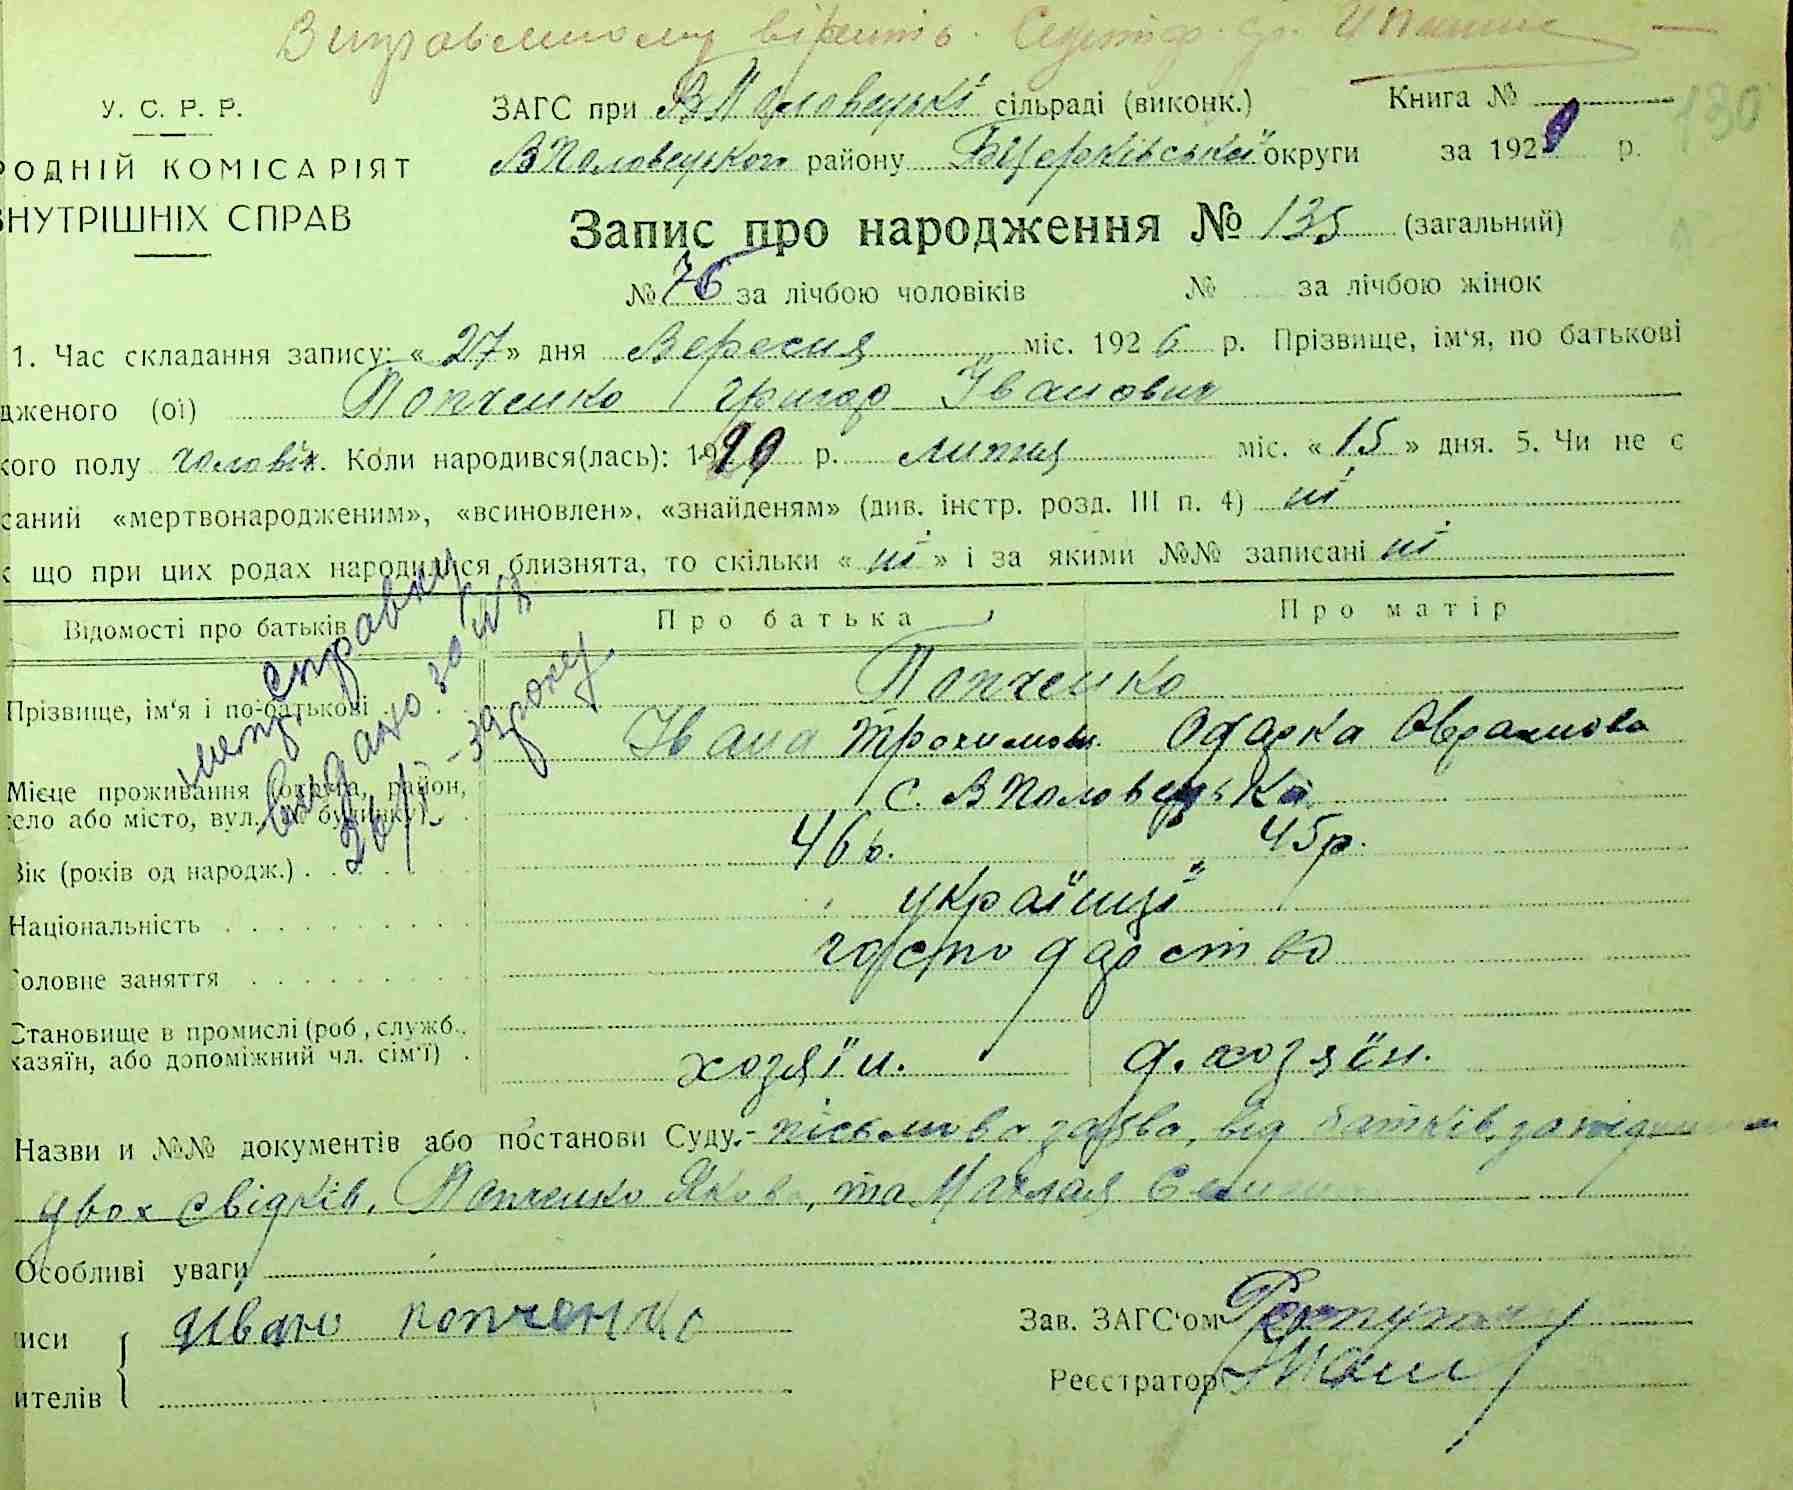 Виправленому вірить. Секретар с/р.
У. С. Р. Р. ЗАГС при В Половецькі сільраді (виконк.) Книга № 130
РОДНІЙ КОМІСАРІЯТ В Половецького району Б Церківської округи за 1929 р.
ВНУТРІШНІХ СПРАВ
Запис про народження № 135 (загальний)
№ 76 за лічбою чоловіків № за лічбою жінок
1. Час складання запису: « 27 » дня Вересня міс. 1926 р. Прізвище, ім'я, по батькові
дженого (ої) Топченко Григор Іванович
кого полу чоловік. Коли народився(лась): 1919 р. липня міс. « 15 » дня. 5. Чи не є
саний «мертвонародженим», «всиновлен», «знайденям» (див. інстр. розд. III п. 4) ні
к що при цих родах народилися близнята, то скільки « ні » і за якими №№ записані ні
Відомості про батьків Про батька Про матір
метр. справку
видано за №
Прізвище, ім'я і по-батькові Топченко
Івана Трохимов. Одарка Оврамова
Місце проживання (округа, район,
село або місто, вул., № будинку) с. В Половецька
Вік (років од народж.) 46 р. 45 р.
Національність українці
Головне заняття господарство
Становище в промислі (роб., служб.,
хазяїн, або допоміжний чл. сім'ї) хозяїн. д. хозяїн.
Назви и №№ документів або постанови Суду.- пісьмова заява, від батьків, за
двох свідків, Топченко Якова, та
Особливі уваги
иси Иван Топченко Зав. ЗАГС'ом
ителів Реєстратор